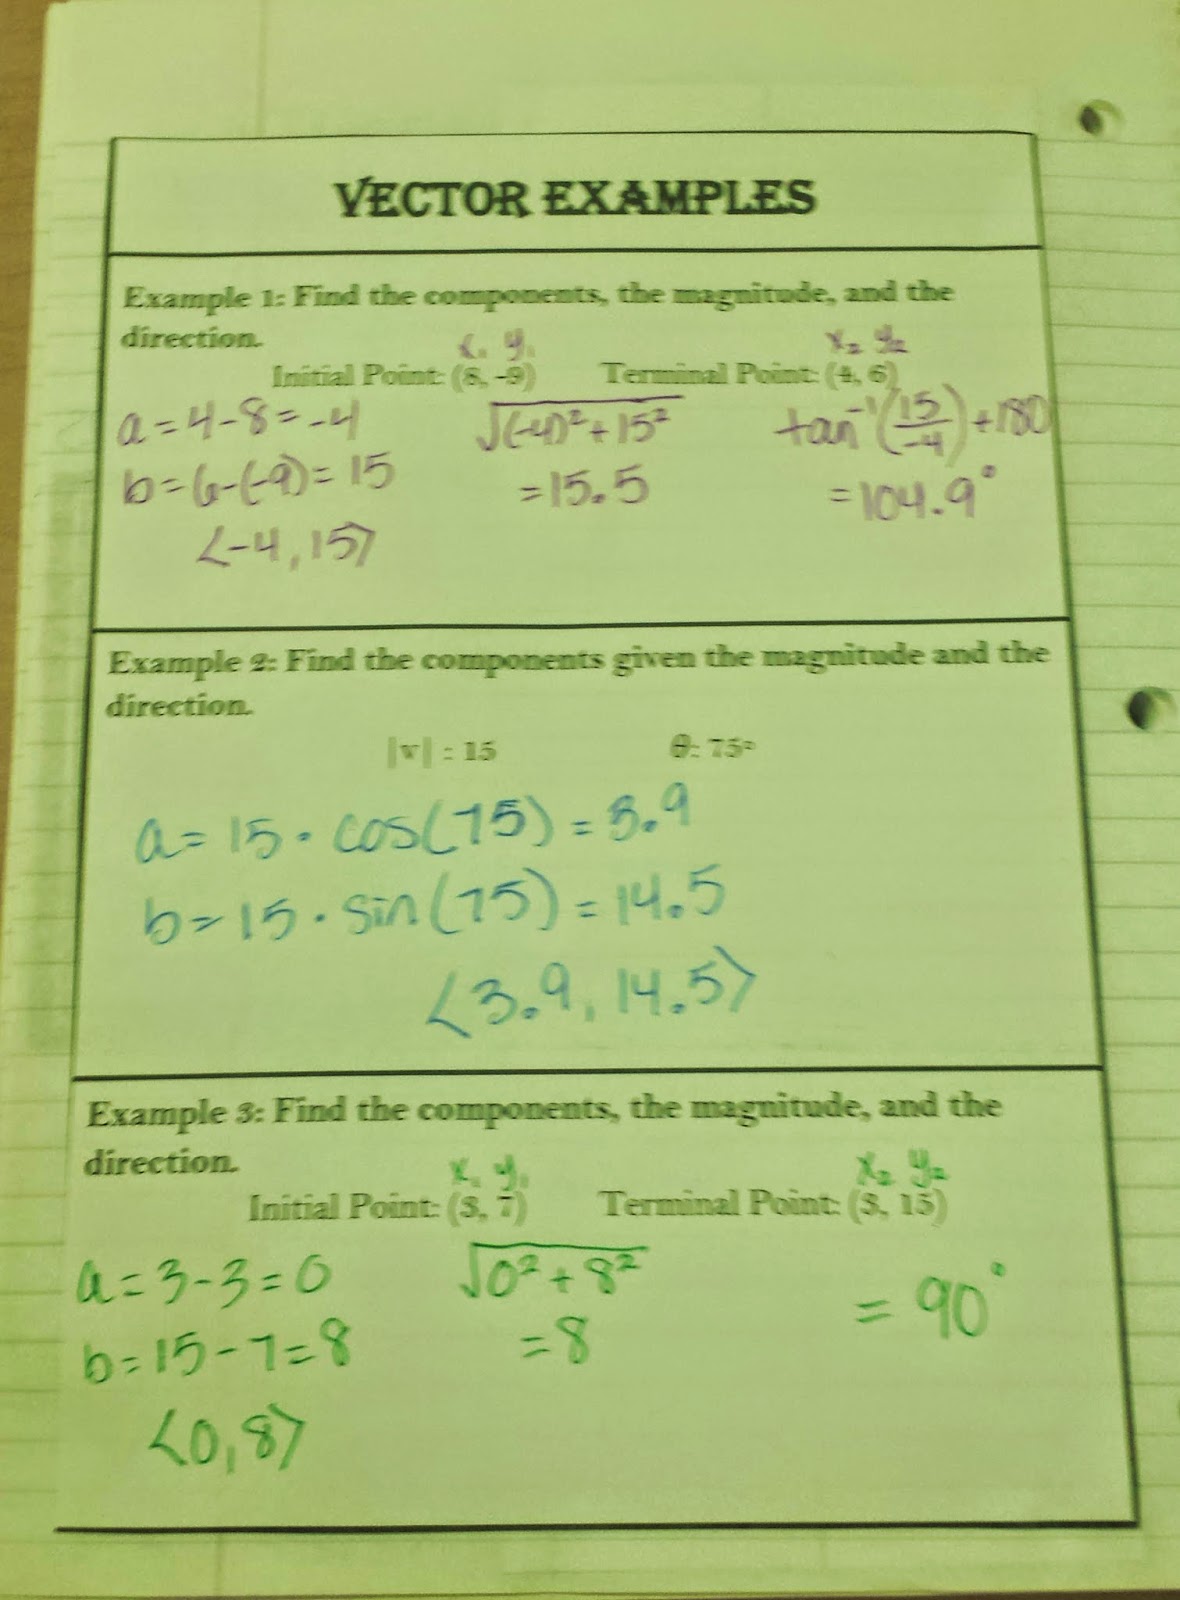 VECTOR EXAMPLES
Example 1: Find the components, the magnitude, and the
direction.
x₁ y₁ x₂ y₂
Initial Point: (8, -9) Terminal Point: (4, 6)
a = 4 - 8 = -4 √((-4)² + 15²) tan⁻¹(15/-4) + 180
b = 6 - (-9) = 15 = 15.5 = 104.9°
⟨-4, 15⟩
Example 2: Find the components given the magnitude and the
direction.
|v| = 15 θ: 75°
a = 15 · cos(75) = 3.9
b = 15 · sin(75) = 14.5
⟨3.9, 14.5⟩
Example 3: Find the components, the magnitude, and the
direction.
x₁ y₁ x₂ y₂
Initial Point: (3, 7) Terminal Point: (3, 15)
a = 3 - 3 = 0 √(0² + 8²) = 90°
b = 15 - 7 = 8 = 8
⟨0, 8⟩